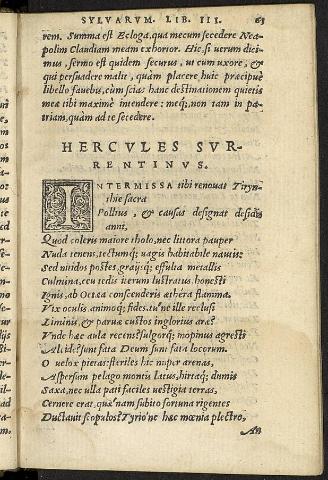 SYLVARVM. LIB. III. 63
rem. Summa est Ecloga, qua mecum secedere Nea-
polim Claudiam meam exhortor. Hic, si uerum dici-
mus, sermo est quidem securus, ut cum uxore, &
qui persuadere malit, quàm placere huic præcipuè
libello fauebis, cùm scias hanc destinationem quietis
meæ tibi maximè intendere: meq́; non tam in pa-
triam, quàm ad te secedere.
HERCVLES SVR-
RENTINVS.
INTERMISSA tibi renouat Tiryn-
thie sacra
Pollius, & causas designat desidis
anni,
Quod coleris maiore tholo, nec littora pauper
Nuda tenens, tectumq́; uagis habitabile nautis:
Sed nitidos postes, graijsq́; effulta metallis
Culmina, ceu tedis iterum lustratus honesti
Ignis, ab Oetæa conscenderis æthera flamma.
Vix oculis animoq́; fides, tu'ne ille reclusi
Liminis, & paruæ custos inglorius aræ?
Vnde hæc aula recens? fulgorq́; inopinus agresti
Alcidæ? sunt fata Deum sunt fata locorum.
O uelox pietas: steriles hic nuper arenas,
Aspersum pelago montis latus, hirtaq́; dumis
Saxa, nec ulla pati faciles uestigia terras,
Cernere erat, quæ'nam subito fortuna rigentes
Ductauit scopulos? Tyrio'ne hæc mœnia plectro,
An